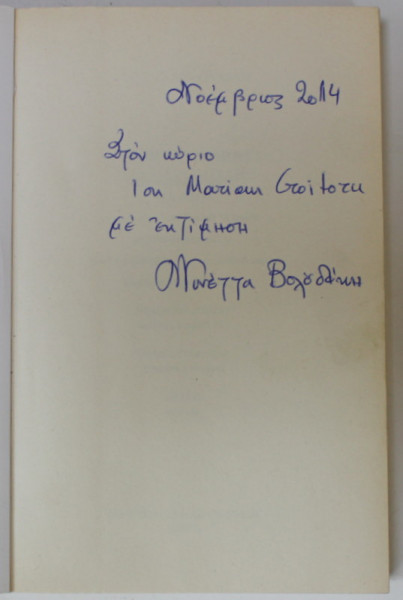 Νοέμβριος 2014
Στόν κύριο
Ion Marian Croitoru
μέ ἐκτίμηση
Νινέττα Βολουδάκη